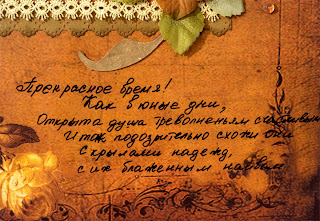 Прекрасное время!
Как в юные дни,
Открыта душа треволненьям счастливым
И так подозрительно схожи они
С крылами надежд,
с их блаженным